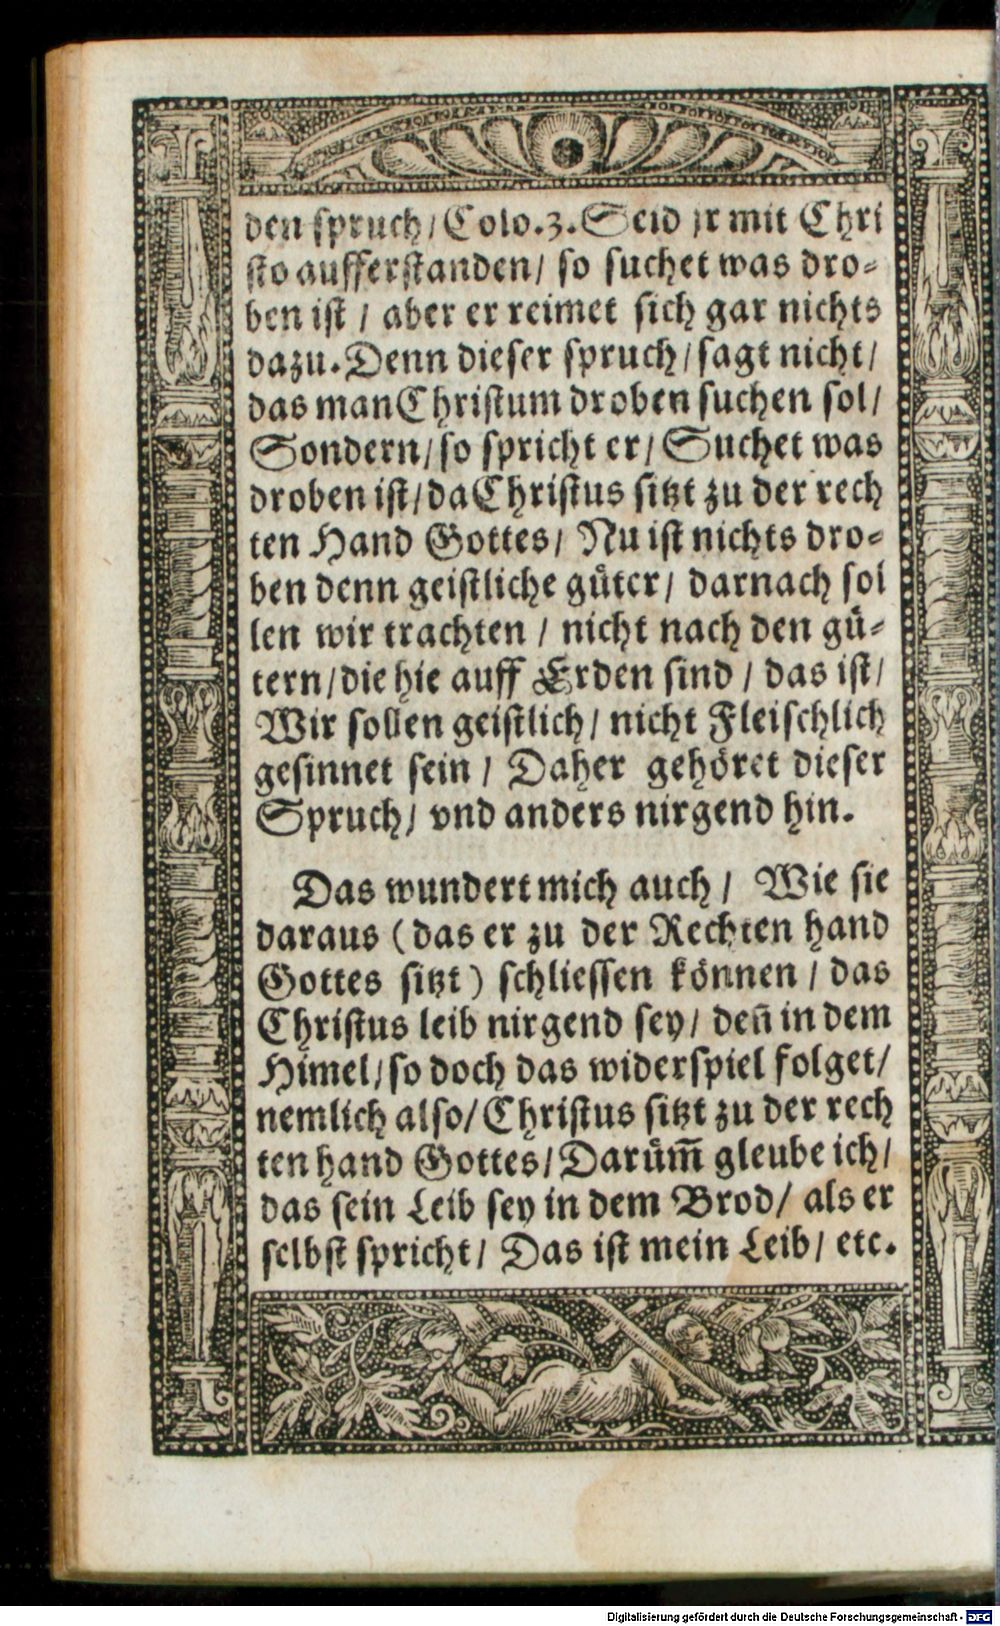 den spruch / Colo. 3. Seid jr mit Chri
sto aufferstanden / so suchet was dro⸗
ben ist / aber er reimet sich gar nichts
dazu. Denn dieser spruch / sagt nicht /
das man Christum droben suchen sol /
Sondern / so spricht er / Suchet was
droben ist / da Christus sitzt zu der rech
ten Hand Gottes / Nu ist nichts dro⸗
ben denn geistliche guͤter / darnach sol
len wir trachten / nicht nach den guͤ⸗
tern / die hie auff Erden sind / das ist /
Wir sollen geistlich / nicht Fleischlich
gesinnet sein / Daher gehoͤret dieser
Spruch / vnd anders nirgend hin.
Das wundert mich auch / Wie sie
daraus (das er zu der Rechten hand
Gottes sitzt) schliessen koͤnnen / das
Christus leib nirgend sey / deñ in dem
Him̃el / so doch das widerspiel folget /
nemlich also / Christus sitzt zu der rech
ten hand Gottes / Daruͤm̃ gleube ich /
das sein Leib sey in dem Brod / als er
selbst spricht / Das ist mein Leib / etc.
Digitalisierung gefördert durch die Deutsche Forschungsgemeinschaft - DFG